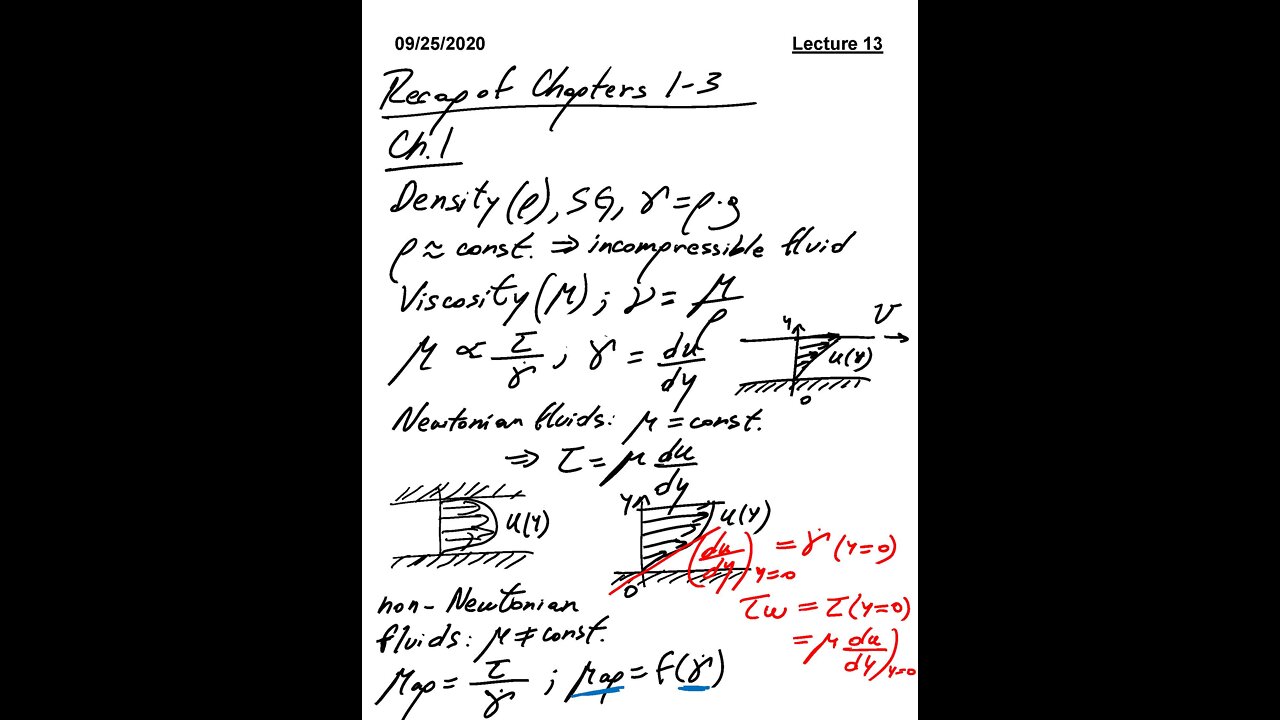 09/25/2020 Lecture 13
Recap of Chapters 1-3
Ch.1
Density (ρ), SG, γ = ρ·g
ρ ≈ const. ⇒ incompressible fluid
Viscosity (μ) ; ν = μ/ρ
μ ∝ τ/γ̇ ; γ̇ = du/dy
y U
u(y)
0
Newtonian fluids: μ = const.
⇒ τ = μ du/dy
u(y)
y u(y)
0
(du/dy)y=0 = γ̇ (y=0)
τw = τ(y=0)
= μ du/dy)y=0
non-Newtonian
fluids: μ ≠ const.
μap = τ/γ̇ ; μap = f(γ̇)